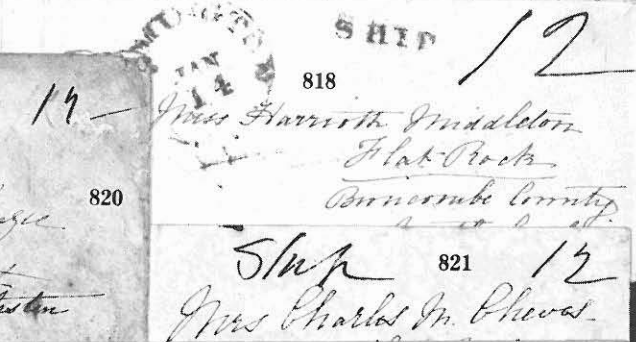 SHIP
12
JAN
14
818
Miss Harriott Middleton
Flat Rock
Buncombe County
17
820
Ship
821
12
Mrs Charles M. Cheves